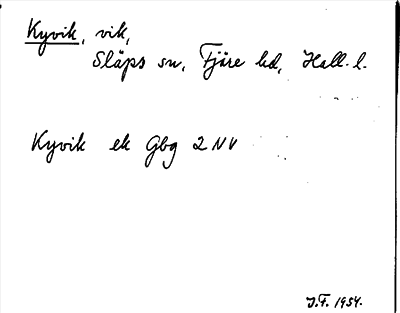 Kyvik, vik,
Släps sn, Fjäre hd, Hall. l.
Kyvik ek Gbg 2 NV
J.F. 1954.